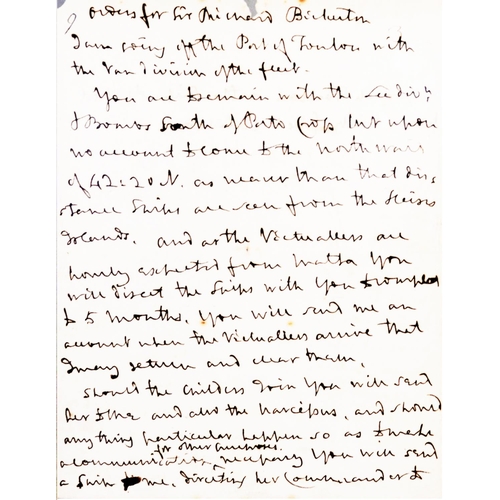 Orders for Sir Richard Bickerton
I am going off the Port of Toulon with
the Van division of the fleet.
You are to remain with the Lee divn
& Bombs South of Porto Cros but upon
no account to come to the Northward
of 42:20 N. as nearer than that dis
stance Ships are seen from the Hieres
Islands. and as the Victuallers are
hourly expected from Malta You
will direct the Ships with You to complete
to 5 months. You will send me an
account when the Victuallers arrive that
I may return and clear them.
Should the Childers Join You will send
her to me and also the Narcissus. and should
any thing particular happen so as to make
for other purposes
a communication necessary You will send
a Ship to me. directing her Commander to